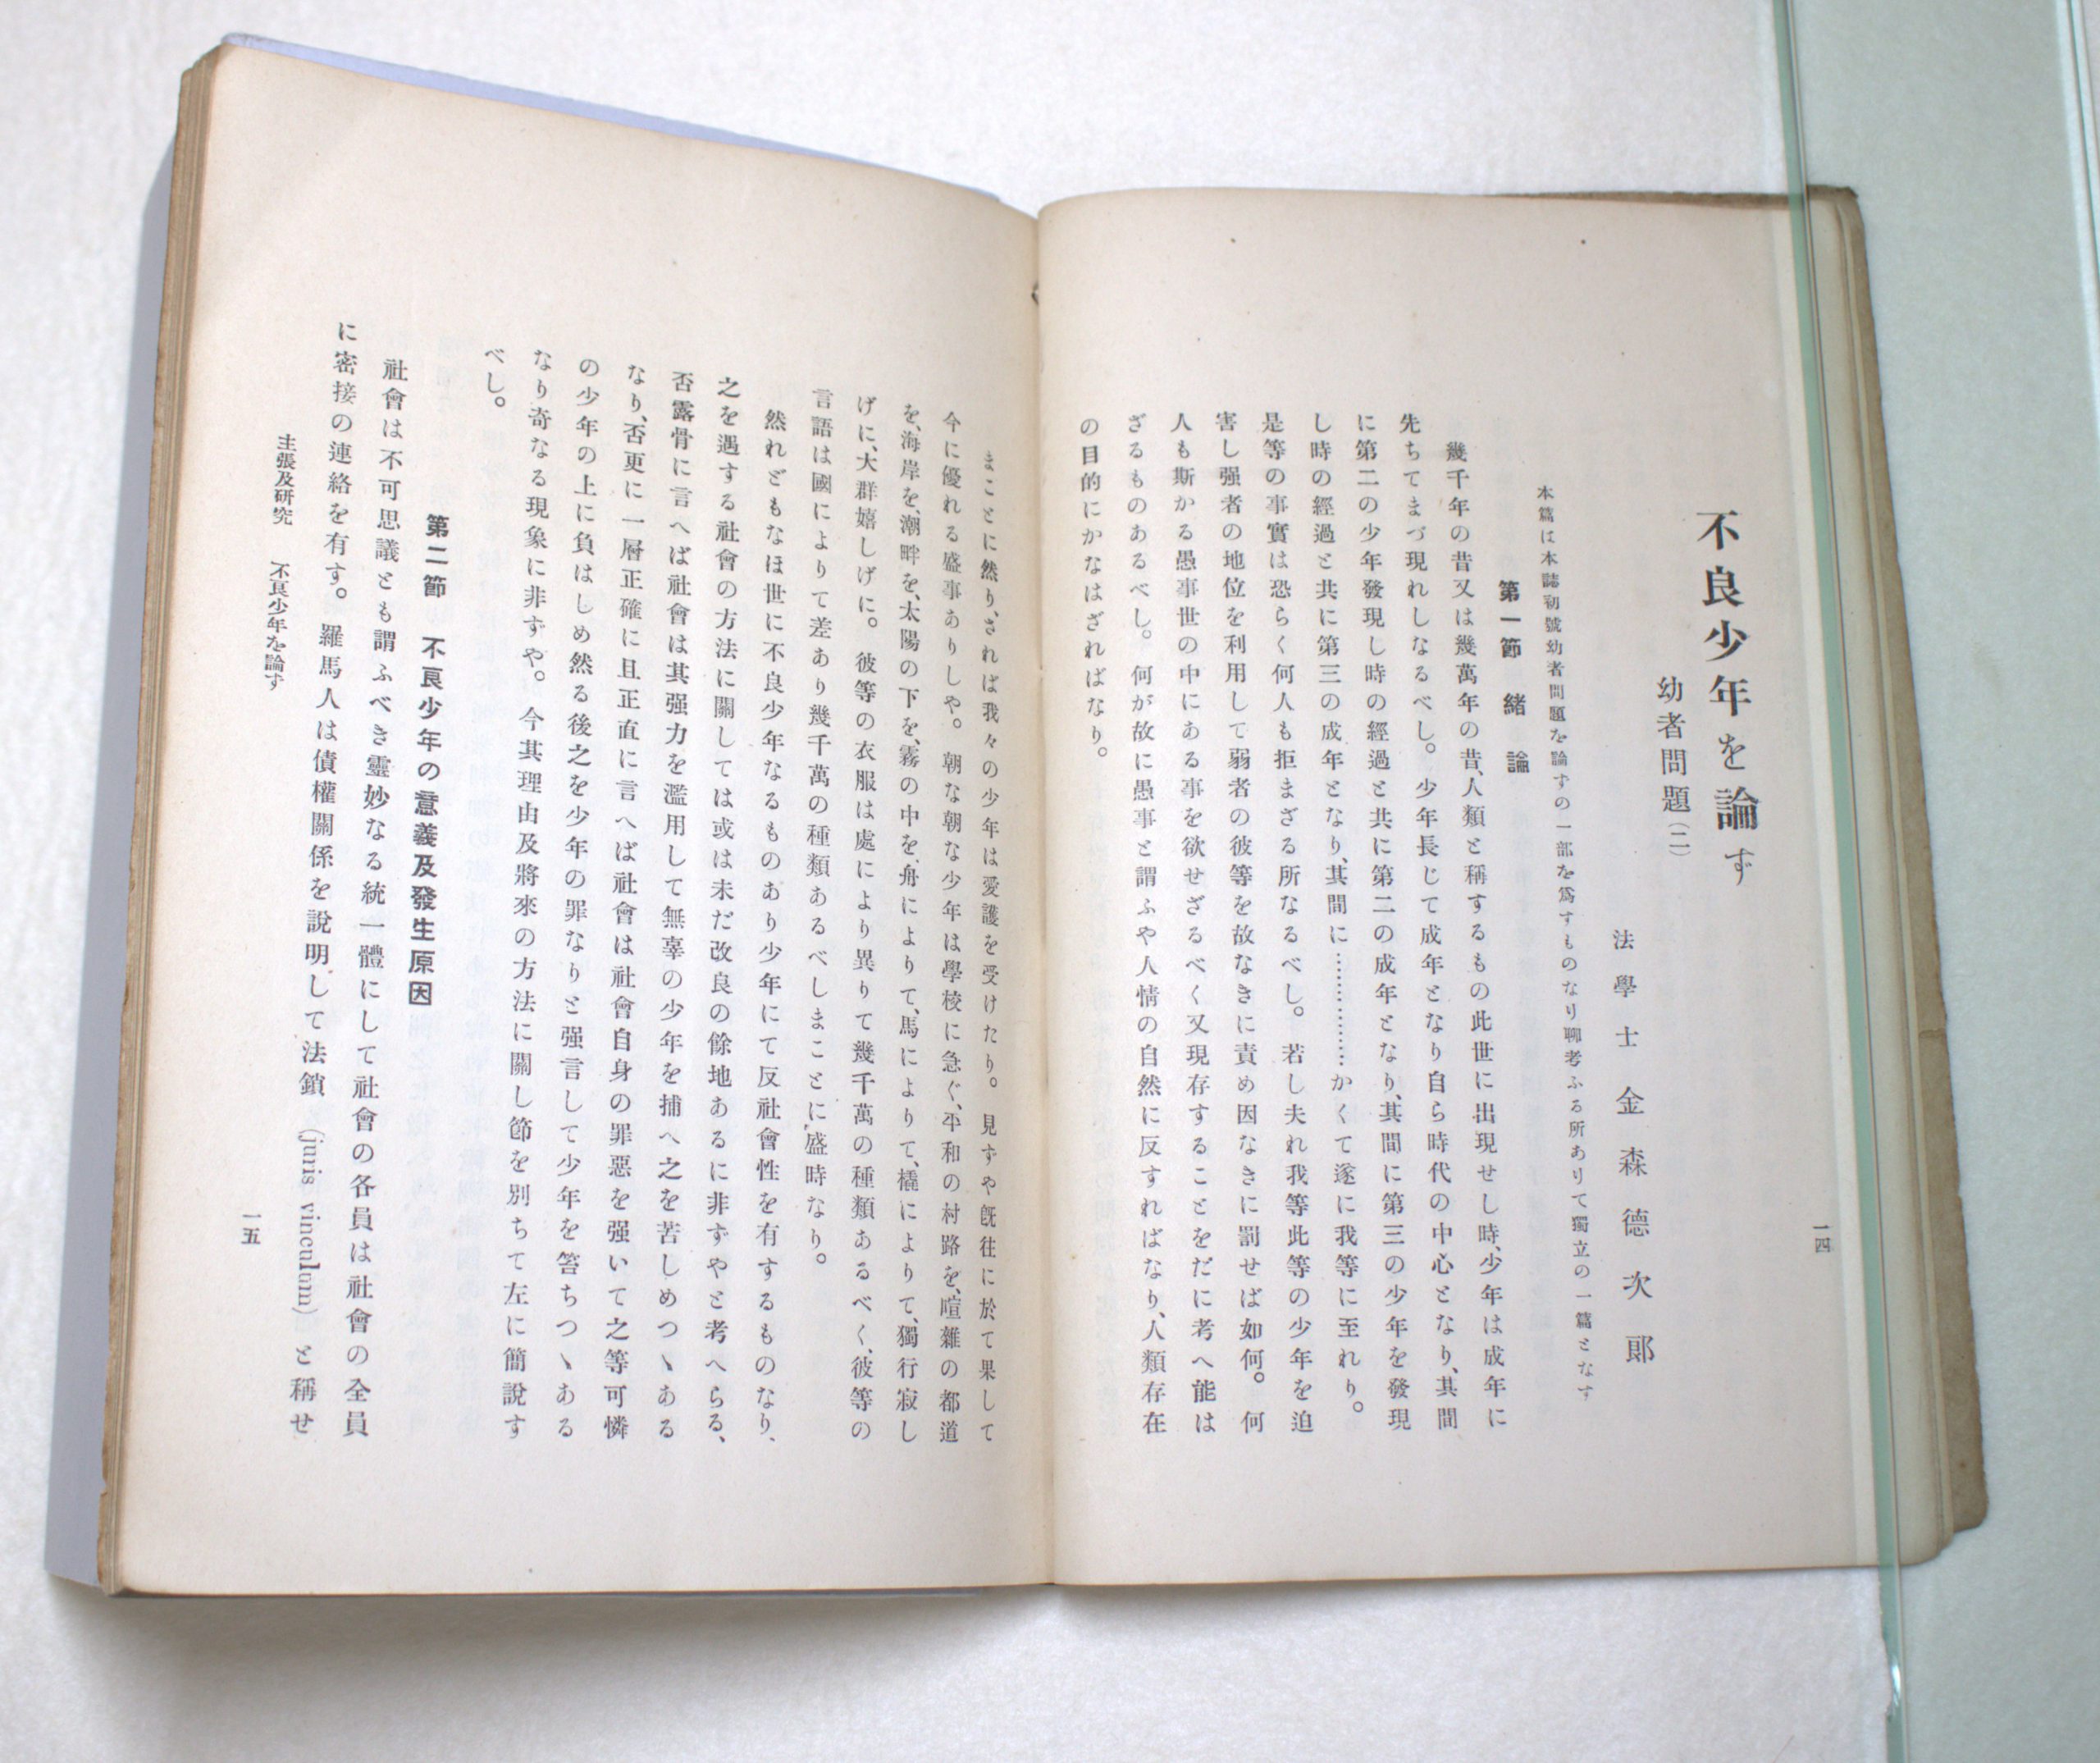 一四
不良少年を論ず
幼者問題(二)
法學士 金森德次郎
本篇は本誌初號幼者問題を論ずの一部を爲すものなり聊考ふる所ありて獨立の一篇となす
第一節 緒論
幾千年の昔又は幾萬年の昔、人類と稱するもの此世に出現せし時、少年は成年に
先ちてまづ現れしなるべし。少年長じて成年となり自ら時代の中心となり、其間
に第二の少年發現し時の經過と共に第二の成年となり、其間に第三の少年を發現
し時の經過と共に第三の成年となり、其間に………………かくて遂に我等に至れり。
是等の事實は恐らく何人も拒まざる所なるべし。若し夫れ我等此等の少年を迫
害し强者の地位を利用して弱者の彼等を故なきに責め因なきに罰せば如何。何
人も斯かる愚事世の中にある事を欲せざるべく又現存することをだに考へ能は
ざるものあるべし。何が故に愚事と謂ふや人情の自然に反すればなり、人類存在
の目的にかなはざればなり。
まことに然り、されば我々の少年は愛護を受けたり。見ずや旣往に於て果して
今に優れる盛事ありしや。朝な朝な少年は學校に急ぐ、平和の村路を、喧雜の都道
を、海岸を、潮畔を、太陽の下を、霧の中を、舟によりて、馬によりて、橇によりて、獨行寂し
げに、大群嬉しげに。彼等の衣服は處により異りて幾千萬の種類あるべく、彼等の
言語は國によりて差あり幾千萬の種類あるべしまことに盛時なり。
然れどもなほ世に不良少年なるものあり少年にて反社會性を有するものなり、
之を遇する社會の方法に關しては或は未だ改良の餘地あるに非ずやと考へらる、
否露骨に言へば社會は其强力を濫用して無辜の少年を捕へ之を苦しめつゝある
なり、否更に一層正確に且正直に言へば社會は社會自身の罪惡を强いて之等可憐
の少年の上に負はしめ然る後之を少年の罪なりと强言して少年を笞ちつゝある
なり奇なる現象に非ずや。今其理由及將來の方法に關し節を別ちて左に簡說す
べし。
第二節 不良少年の意義及發生原因
社會は不可思議とも謂ふべき靈妙なる統一體にして社會の各員は社會の全員
に密接の連絡を有す。羅馬人は債權關係を說明して法鎖(juris vinculum)と稱せ
主張及硏究 不良少年を論ず
一五